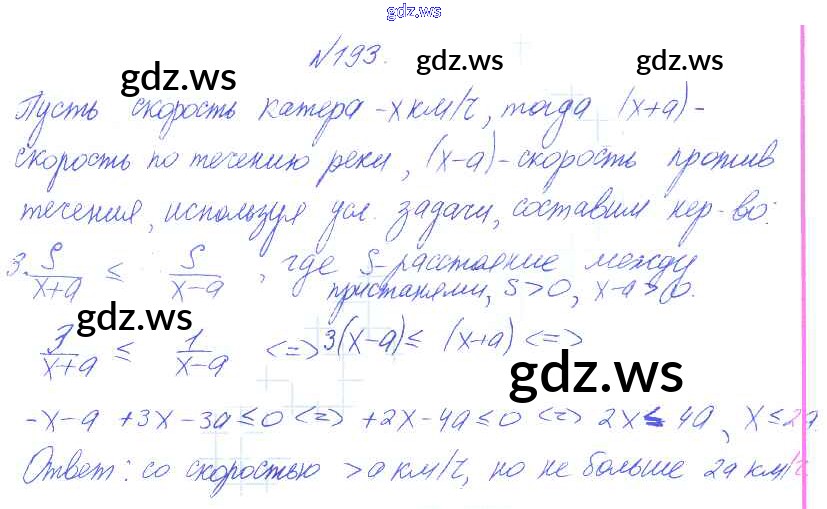 gdz.ws
№193.
gdz.ws gdz.ws gdz.ws
Пусть скорость катера - х км/ч, тогда (х+а) -
скорость по течению реки, (х-а) - скорость против
течения, используя усл. задачи, составим нер-во:
3. S/(х+а) ≤ S/(х-а), где S - расстояние между
пристанями, S>0, х-а>0.
gdz.ws
3/(х+а) ≤ 1/(х-а) <=> 3(х-а) ≤ (х+а) <=>
gdz.ws
-х-а +3х-3а≤0 <=> +2х-4а≤0 <=> 2х≤4а, х≤2а.
Ответ: со скоростью >а км/ч, но не больше 2а км/ч.